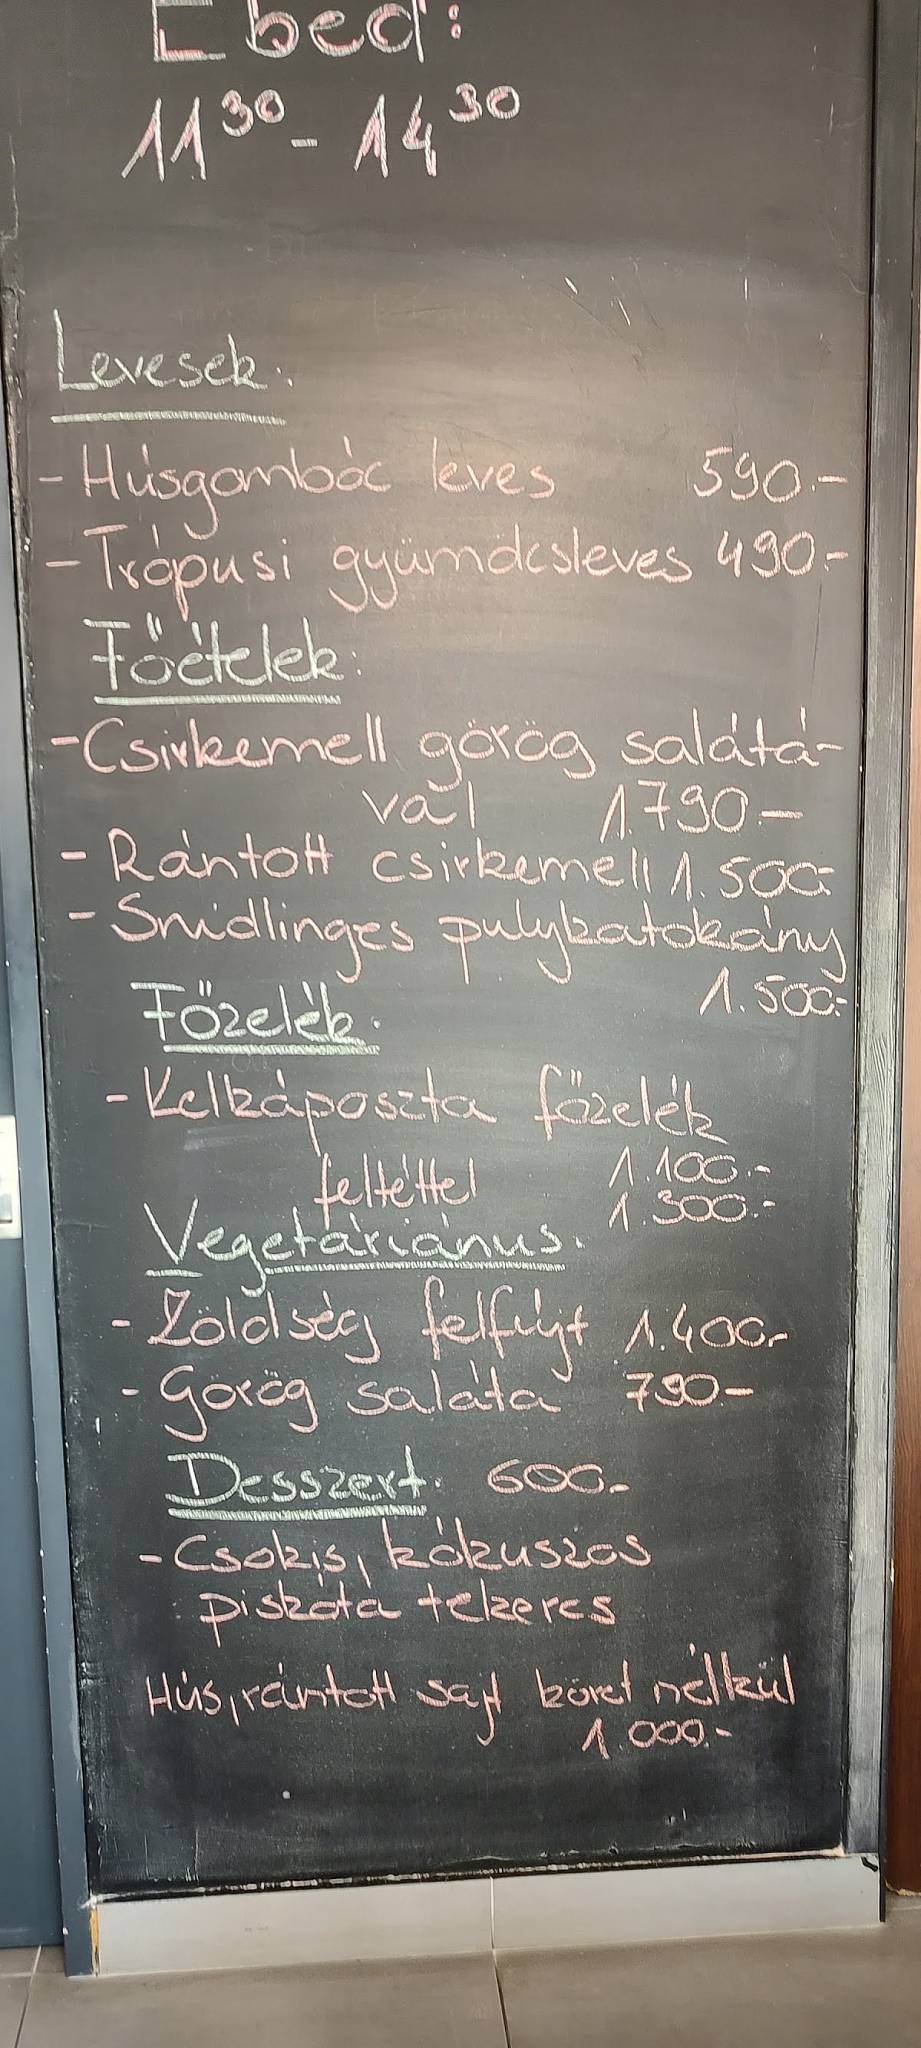 Ebéd:
11³⁰ - 14³⁰
Levesek:
- Húsgombóc leves 590.-
- Trópusi gyümölcsleves 490.-
Főételek:
- Csirkemell görög salátá-
val 1.790.-
- Rántott csirkemell 1.500.-
- Snidlinges pulykatokány
1.500.-
Főzelék:
- Kelkáposzta főzelék
1.100.-
feltéttel 1.300.-
Vegetáriánus:
- Zöldség felfújt 1.400.-
- Görög saláta 790.-
Desszert: 600.-
- Csokis, kókuszos
piskóta tekercs
Hús, rántott sajt köret nélkül
1.000.-